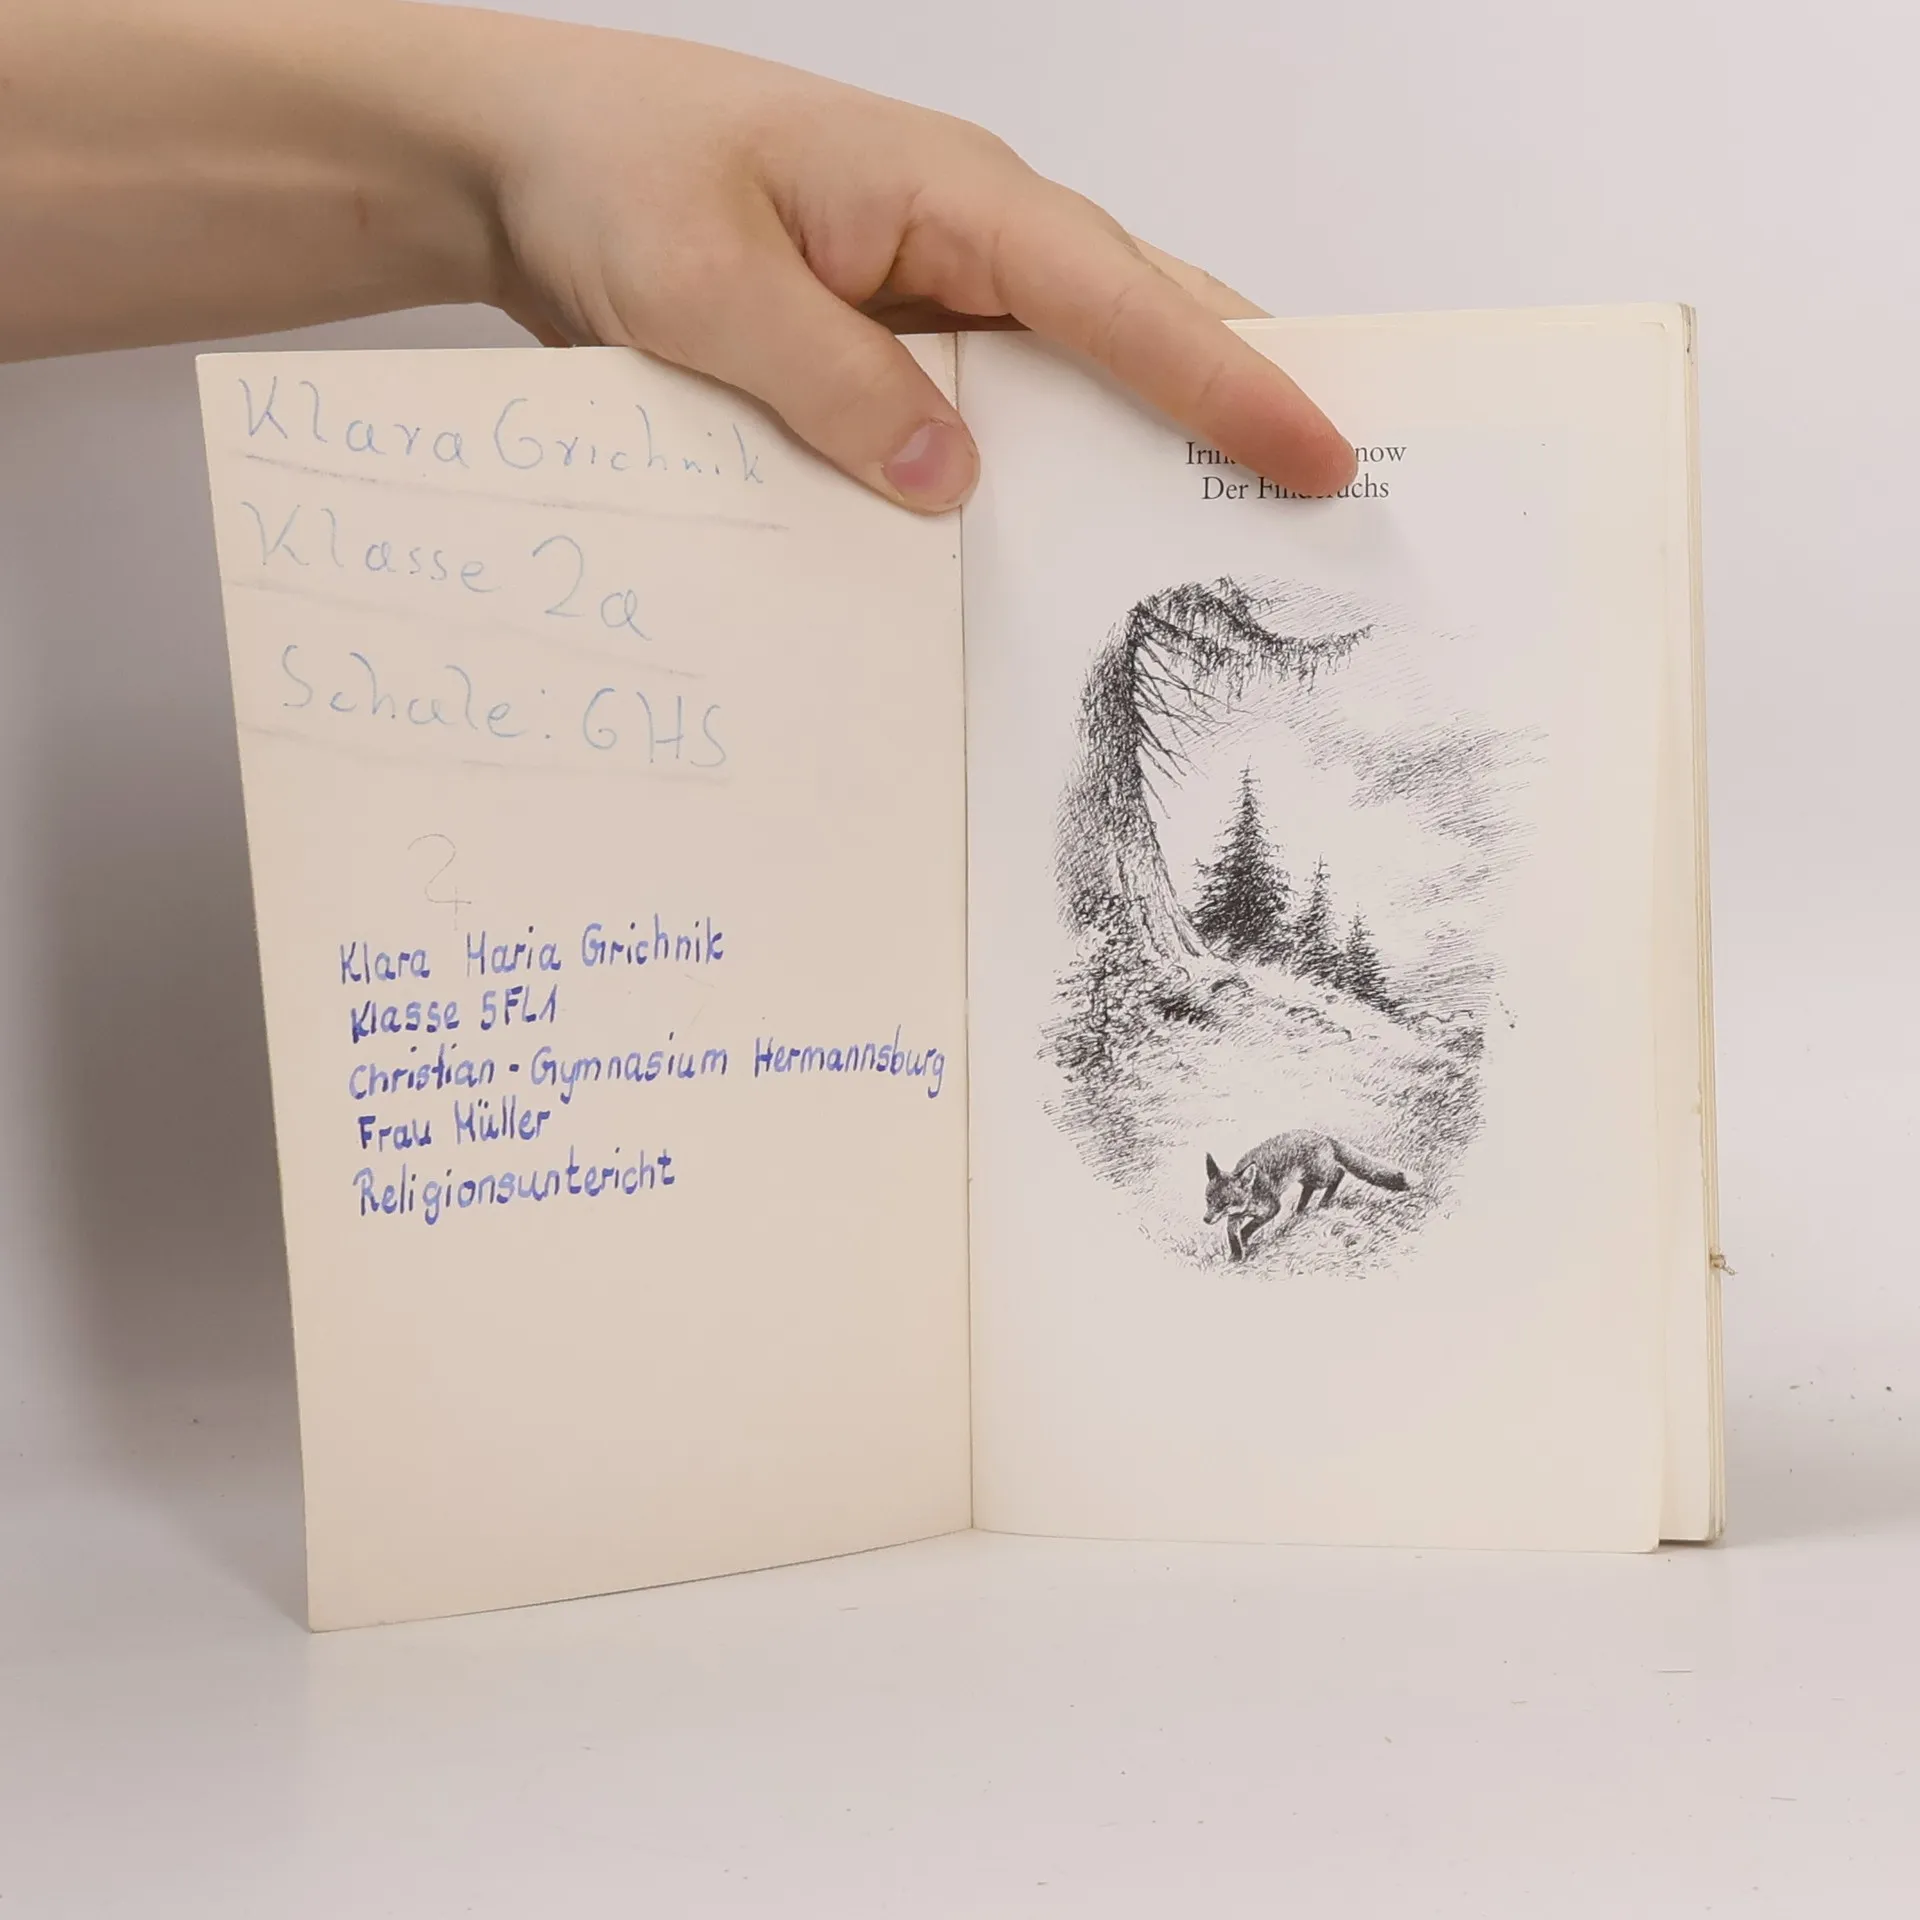 Klara Grichnik
Klasse 2a
Schule: GHS
2
Klara Maria Grichnik
Klasse 5FL1
Christian-Gymnasium Hermannsburg
Frau Müller
Religionsuntericht
Der